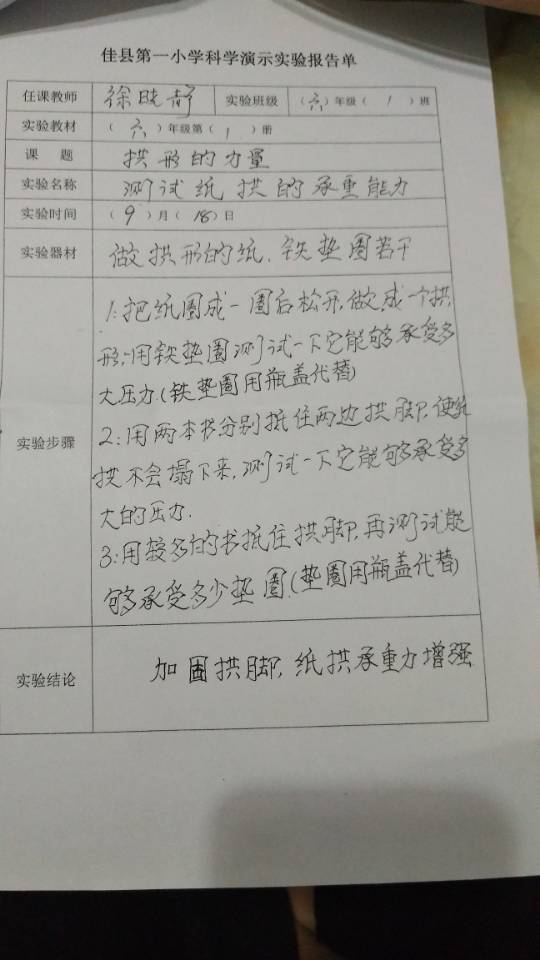 佳县第一小学科学演示实验报告单
任课教师 徐晓静 实验班级 （六）年级（1）班
实验教材 （六）年级第（1）册
课 题 拱形的力量
实验名称 测试纸拱的承重能力
实验时间 （9）月（18）日
实验器材 做拱形的纸、铁垫圈若干
1:把纸圈成一圈后松开,做成一个拱
形,用铁垫圈测试一下它能够承受多
大压力.(铁垫圈用瓶盖代替)
实验步骤
2:用两本书分别抵住两边拱脚,使纸
拱不会塌下来,测试一下它能够承受多
大的压力.
3:用较多的书抵住拱脚,再测试能
够承受多少垫圈.(垫圈用瓶盖代替)
实验结论 加固拱脚,纸拱承重力增强